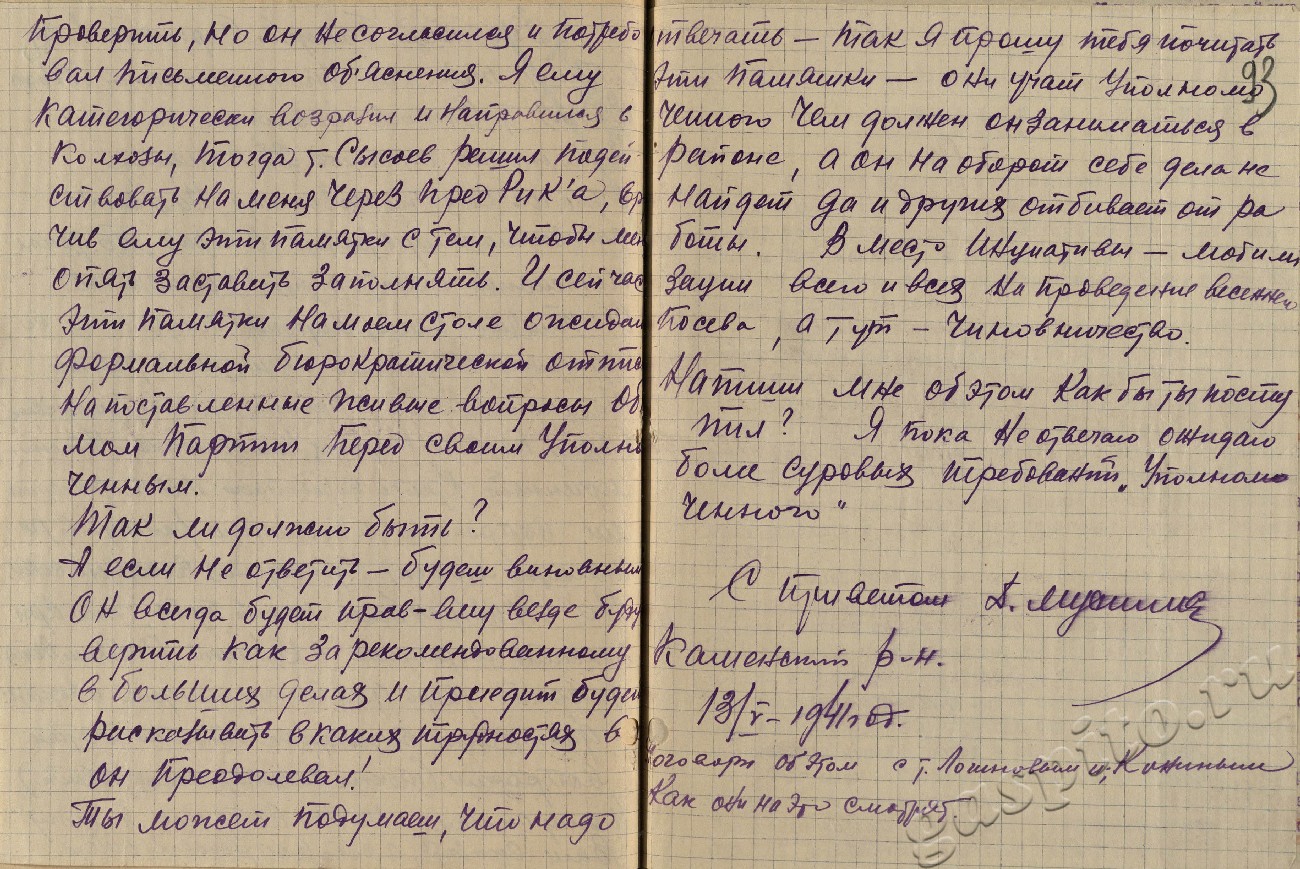 Проверить, но он не согласился и потребо
вал письменного об'яснения. Я ему
категорически возразил и направился в
колхозы, тогда т. Сысоев решил подей
ствовать на меня через Пред Рик'а, вр
чив ему эти памятки с тем, чтобы мен
опять заставить заполнять. И сейчас
эти памятки на моем столе ожидаю
формальной бюрократической отпи
на поставленные живые вопросы Об
мом Партии перед своим Уполно
ченным.
Так ли должно быть?
А если не ответить — будеш виновным
Он всегда будет прав — ему везде буду
верить как зарекомендованному
в больших делах и приедит будет
рассказывать в каких трудностях в
он преодолевал!
Ты может подумаеш, что надо
93
твечать — так я прошу тебя почитать
эти памятки — они учат Уполномо
ченного чем должен он заниматься в
районе, а он на оборот себе дела не
найдет да и других отбивает от ра
боты. В место инициативы — мобили
зации всего и всех на проведение весеннего
посева, а тут — чиновничество.
Напиши мне об этом как бы ты посту
пил? Я пока не отвечаю ожидаю
боле суровых требований „Уполномо
ченного“
С приветом
Каменский р-н.
13/V – 1941 год.
поговори об этом с т.
как они на это смотрят
gaspito.ru